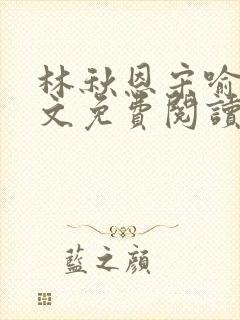 林秋恩宋喻
文免費閱讀
藍之顏